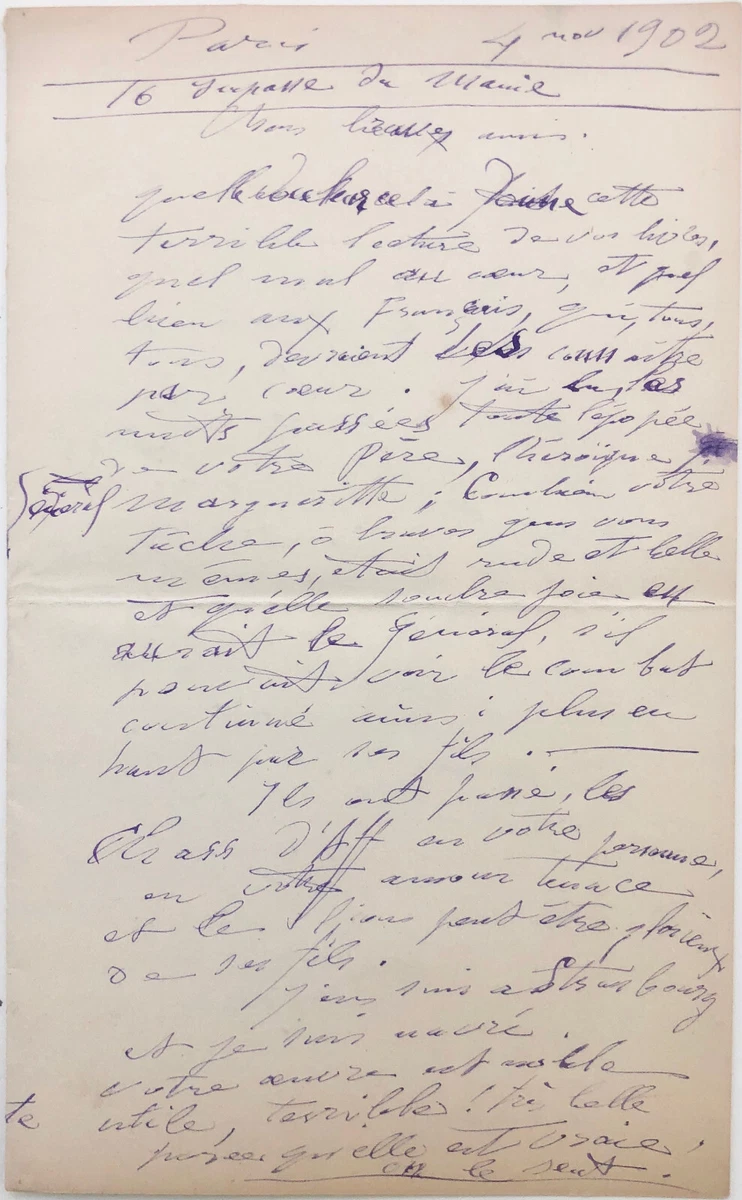 Paris 4 nov 1902
16 Impasse du Maine
Chers braves amis.
quelle douleur cela donne cette
terrible lecture de vos livres,
quel mal au cœur, et quel
bien aux Français, qui, tous,
tous, devraient les connaître
par cœur. J'ai lu, les
nuits passées toute l'épopée
de votre Père, l'héroïque
Général Margueritte ; Combien votre
tâche, ô braves gens vous
mêmes, était rude et belle
et qu'elle sombre joie en
aurait le Général, s'il
pouvait voir le combat
continué ainsi plus en
haut par ses fils.
Ils ont passé, les
Chass d'Aff en votre personne,
en votre amour tenace
et le lions peut être glorieux
de ses fils.
J'en suis a Strasbourg
et je suis navré.
votre œuvre est noble
utile, terrible ! très belle
parce qu'elle est vraie,
on le sent.
te